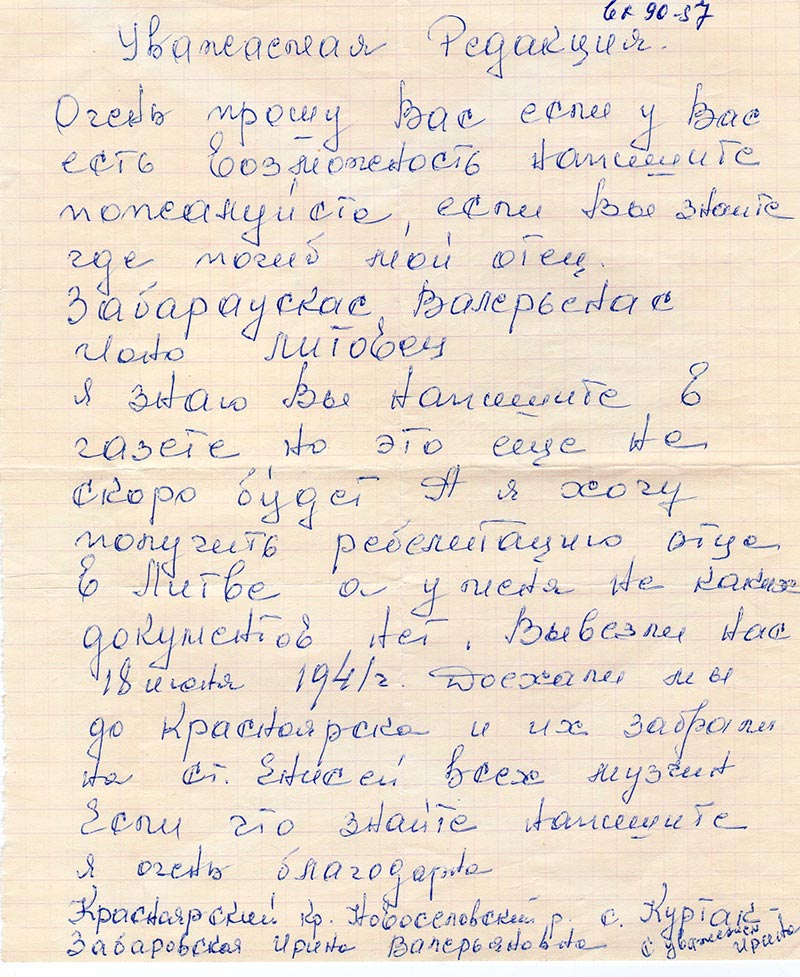 Вк 90-57
Уважаемая Редакция.
Очень прошу Вас если у Вас
есть Возможность напишите
пожалуйста, если Вы знаите
где погиб мой отец.
Забараускас Валерьенас
Ионо литовец
я знаю Вы напишите в
газете но это еще не
скоро будет А я хочу
получить ребелитацию отца
в Литве а у меня не каких
документов нет. Вывезли нас
18 июня 1941г. Доехали мы
до Красноярска и их забрали
на ст. Енисей всех музчин
Если что знайте напишите
я очень благодарна
Красноярский кр. Новоселовский р. с. Куртак
Забаровская Ирина Валерьяновна с уважением
Ирина